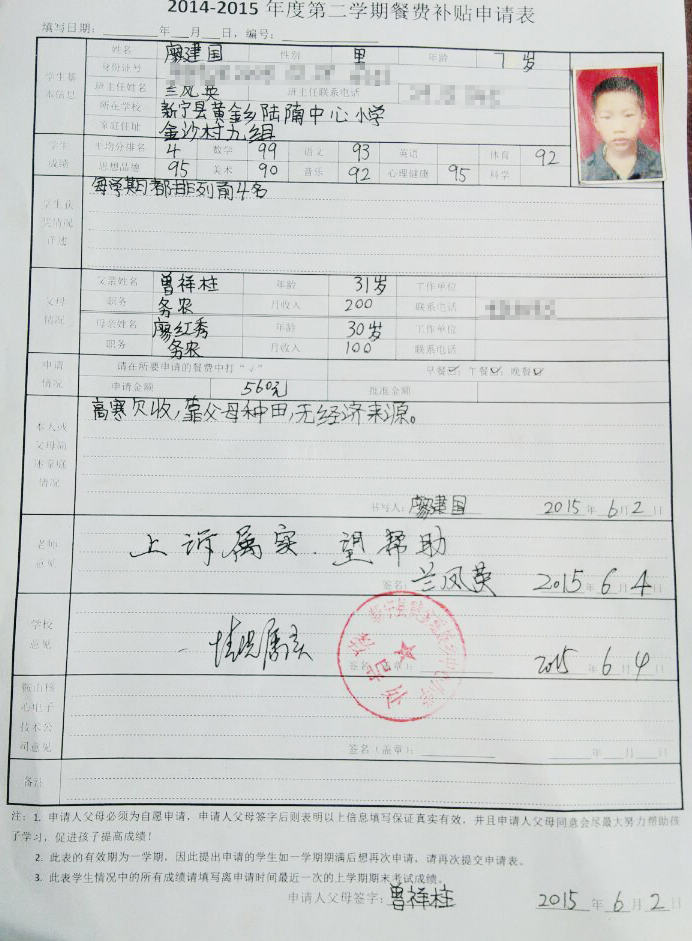 2014-2015 年度第二学期餐费补贴申请表
填写日期：____年__月__日，编号：____
学生基本信息
姓名 廖建国 性别 男 年龄 7岁
身份证号
班主任姓名 兰凤英 班主任联系电话
所在学校 新宁县黄金乡陆陶中心小学
家庭住址 金沙村九组
学生成绩
平均分排名 4 数学 99 语文 93 英语 体育 92
思想品德 95 美术 90 音乐 92 心理健康 95 科学
学生获奖情况详述
每学期都排列前4名
父母情况
父亲姓名 曾祥柱 年龄 31岁 工作单位
职务 务农 月收入 200 联系电话
母亲姓名 廖红秀 年龄 30岁 工作单位
职务 务农 月收入 100 联系电话
申请情况
请在所要申请的餐费中打“√” 早餐☑，午餐☑，晚餐☑
申请金额 560元 批准金额
本人或父母简述家庭情况
高寒欠收，靠父母种田，无经济来源。
书写人：廖建国 2015年6月2日
老师意见
上诉属实．望帮助
签名：兰凤英 2015年6月4
学校意见
情况属实
签名（盖章） 2015 6月4
心电子技术公司意见
签名（盖章）：____ ____年__月__日
备注
注：1. 申请人父母必须为自愿申请，申请人父母签字后则表明以上信息填写保证真实有效，并且申请人父母同意会尽最大努力帮助孩
子学习，促进孩子提高成绩！
2. 此表的有效期为一学期，因此提出申请的学生如一学期期满后想再次申请，请再次提交申请表。
3. 此表学生情况中的所有成绩请填写离申请时间最近一次的上学期期末考试成绩。
申请人父母签字：曾祥柱 2015年6月2日